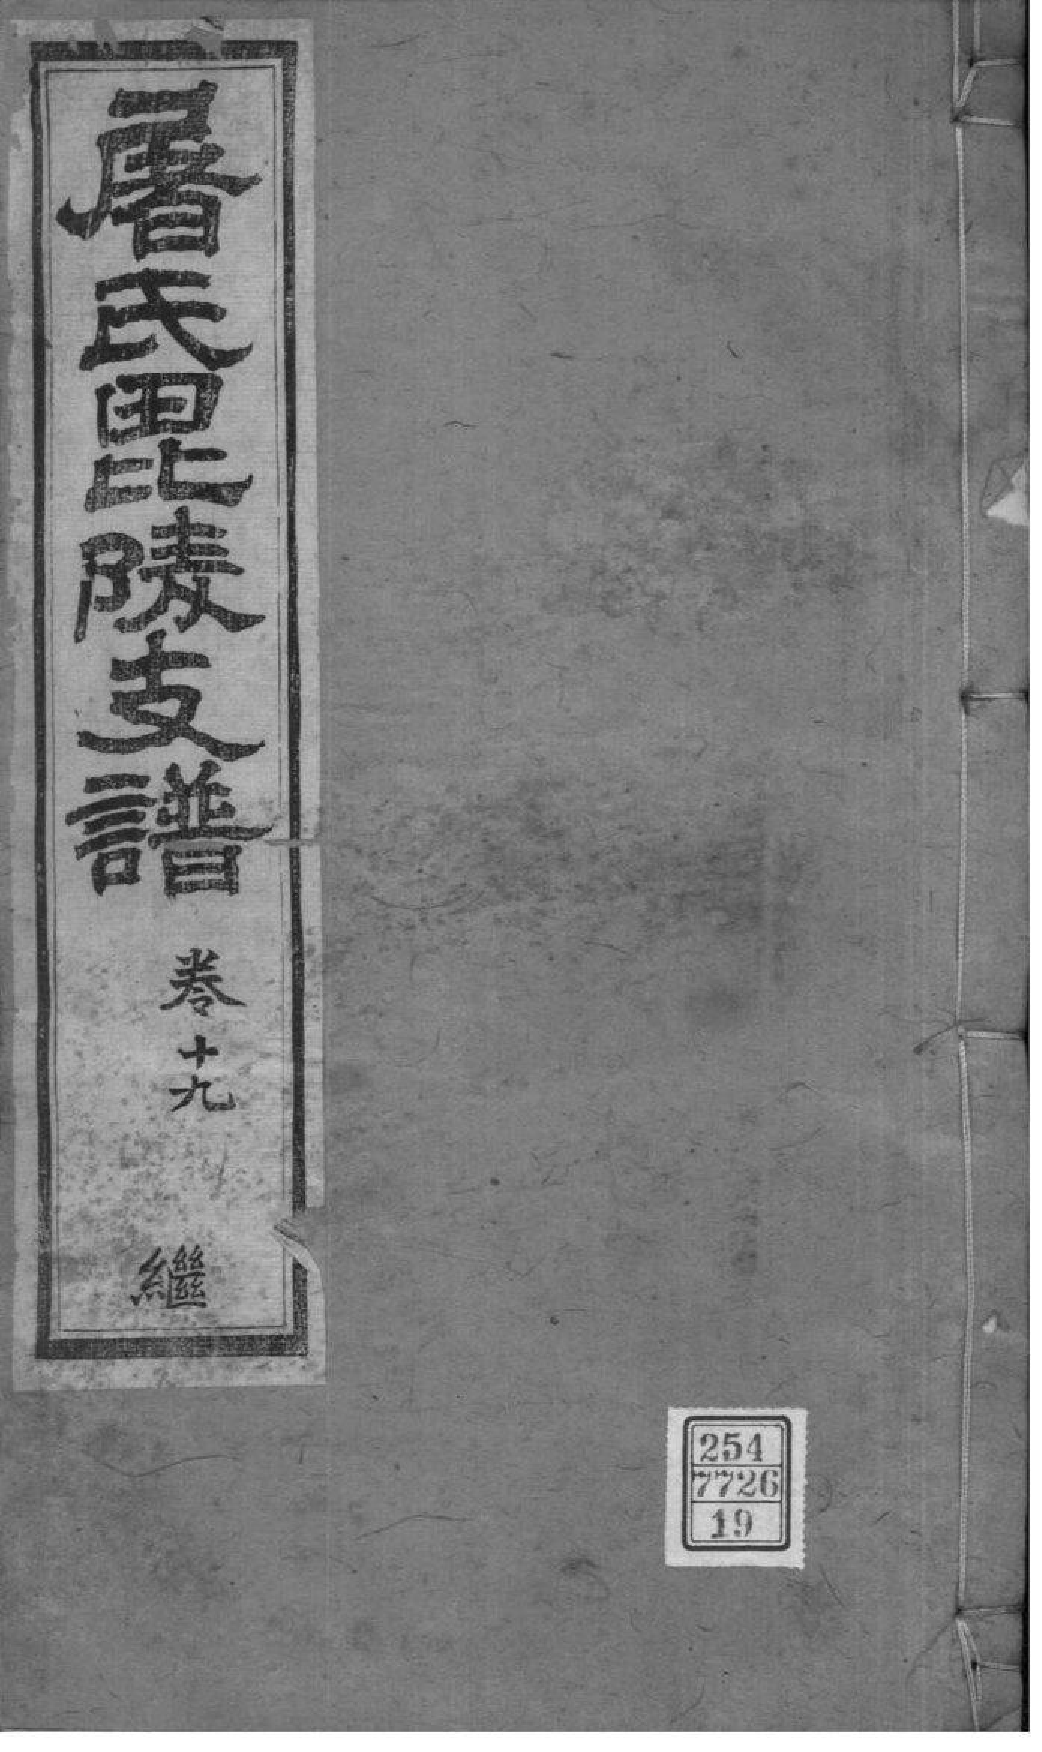 屠氏毘陵支譜
卷十九
繼
254
7726
19